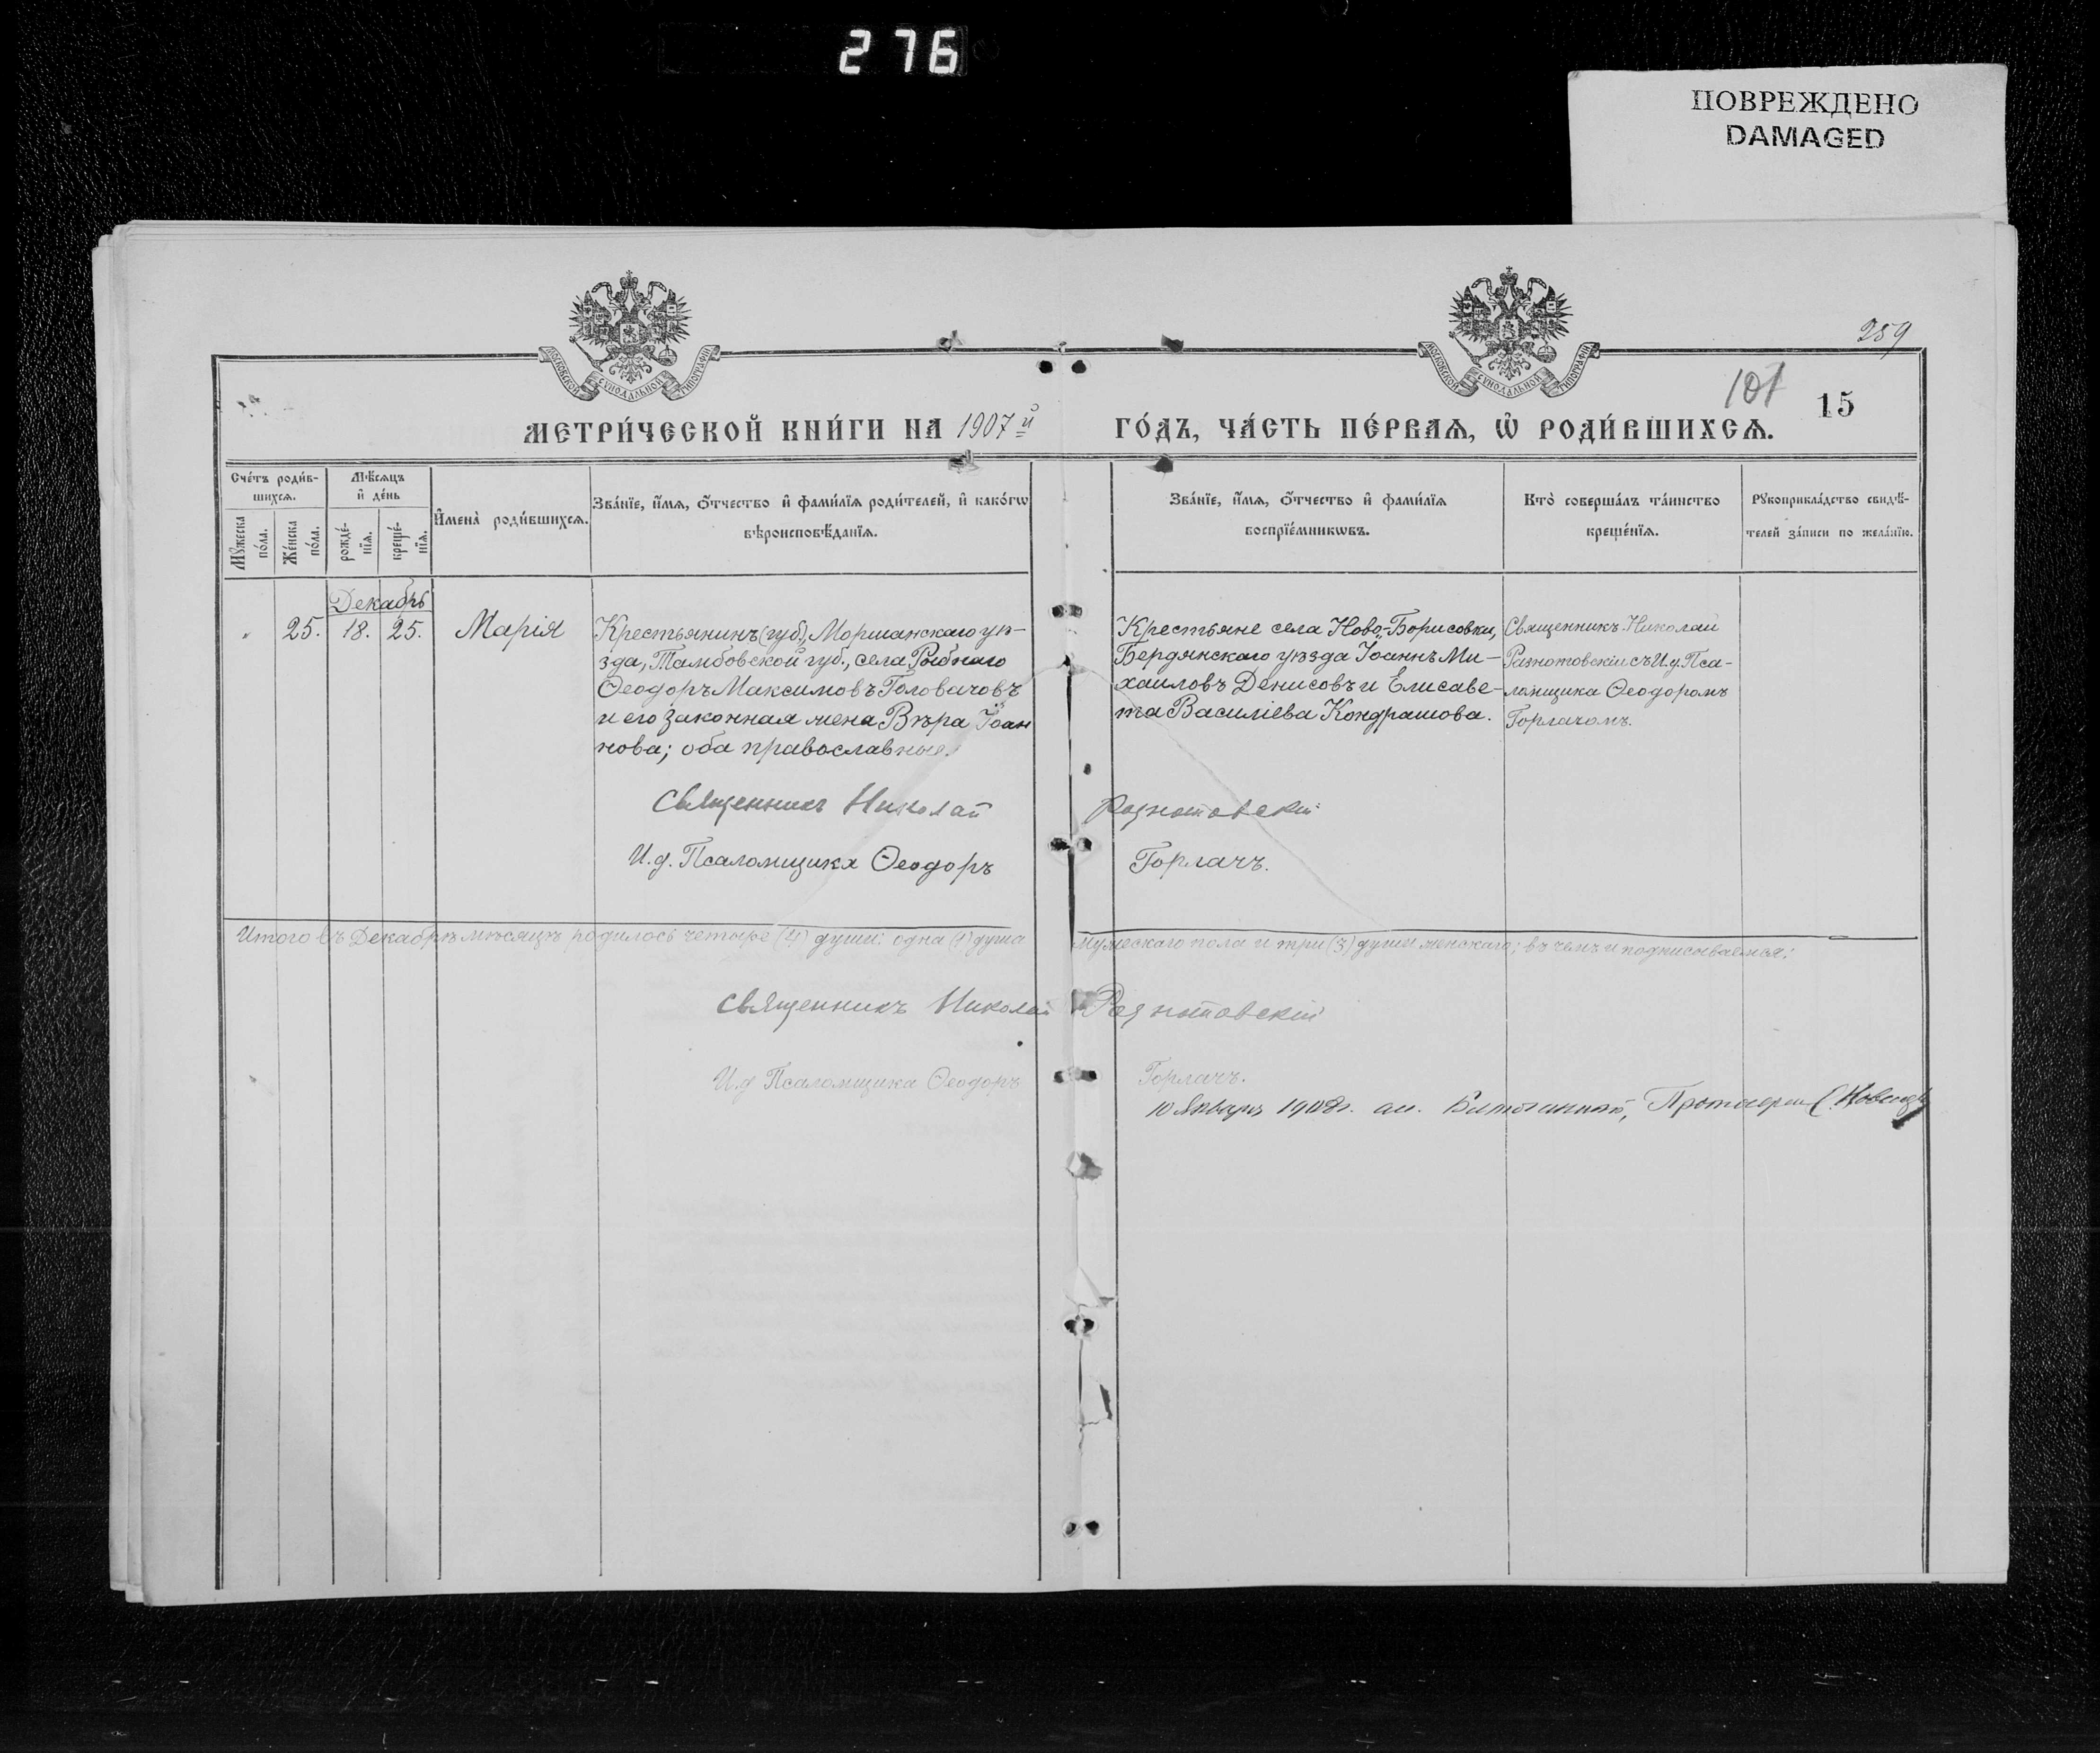 276
ПОВРЕЖДЕНО
DAMAGED
259
МОСКОВСКОЙ СУНОДАЛЬНОЙ ТИПОГРАФІИ
МОСКОВСКОЙ СУНОДАЛЬНОЙ ТИПОГРАФІИ
101
15
МЕТРИ́ЧЕСКОЙ КНИ́ГИ НА 1907й ГО́ДЪ, ЧА́СТЬ ПЕ́РВАѦ, Ѡ҆ РОДИ́ВШИХСѦ.
Сче́тъ роди́в-
шихсѧ.
Мѣ́сѧцъ
и҆ де́нь
Мꙋ́жеска
по́ла.
Же́нска
по́ла.
рожде́-
нїѧ.
креще́-
нїѧ.
И҆мена̀ роди́вшихсѧ.
Зва́нїе, и҆́мѧ, ѻ҆́тчество и҆ фами́лїѧ роди́телей, и҆ како́гѡ
вѣроисповѣ́данїѧ.
Зва́нїе, и҆́мѧ, ѻ҆́тчество и҆ фами́лїѧ
воспрїе́мникѡвъ.
Кто̀ соверша́лъ та́инство
креще́нїѧ.
Рꙋкоприкла́дство свидѣ́-
телей за́писи по жела́нїю.
Декабрь
" 25. 18. 25. Марія
Крестьянинъ (губ), Моршанскаго уѣ-
зда, Тамбовской губ., села Рыбнаго
Ѳеодоръ Максимовъ Головачовъ
и его законная жена Вѣра Іоан
нова; оба православные.
Крестьяне села Ново-Борисовки,
Бердянскаго уѣзда Іоаннъ Ми-
хаиловъ Денисовъ и Елисаве-
та Василіева Кондрашова.
Священникъ Николай
Разнотовскій съ И.д. Пса-
ломщика Ѳеодоромъ
Горлачомъ.
Священникъ Николай Разнотовскій
И.д. Псаломщика Ѳеодоръ Горлачъ.
Итого въ Декабрѣ мѣсяцѣ родилось четыре (4) души: одна (1) душа мужескаго пола и три (3) души женскаго; въ чемъ и подписываемся:
Священникъ Николай Разнотовскій
И.д. Псаломщика Ѳеодоръ Горлачъ.
10 Января 1908г. Протоіерей